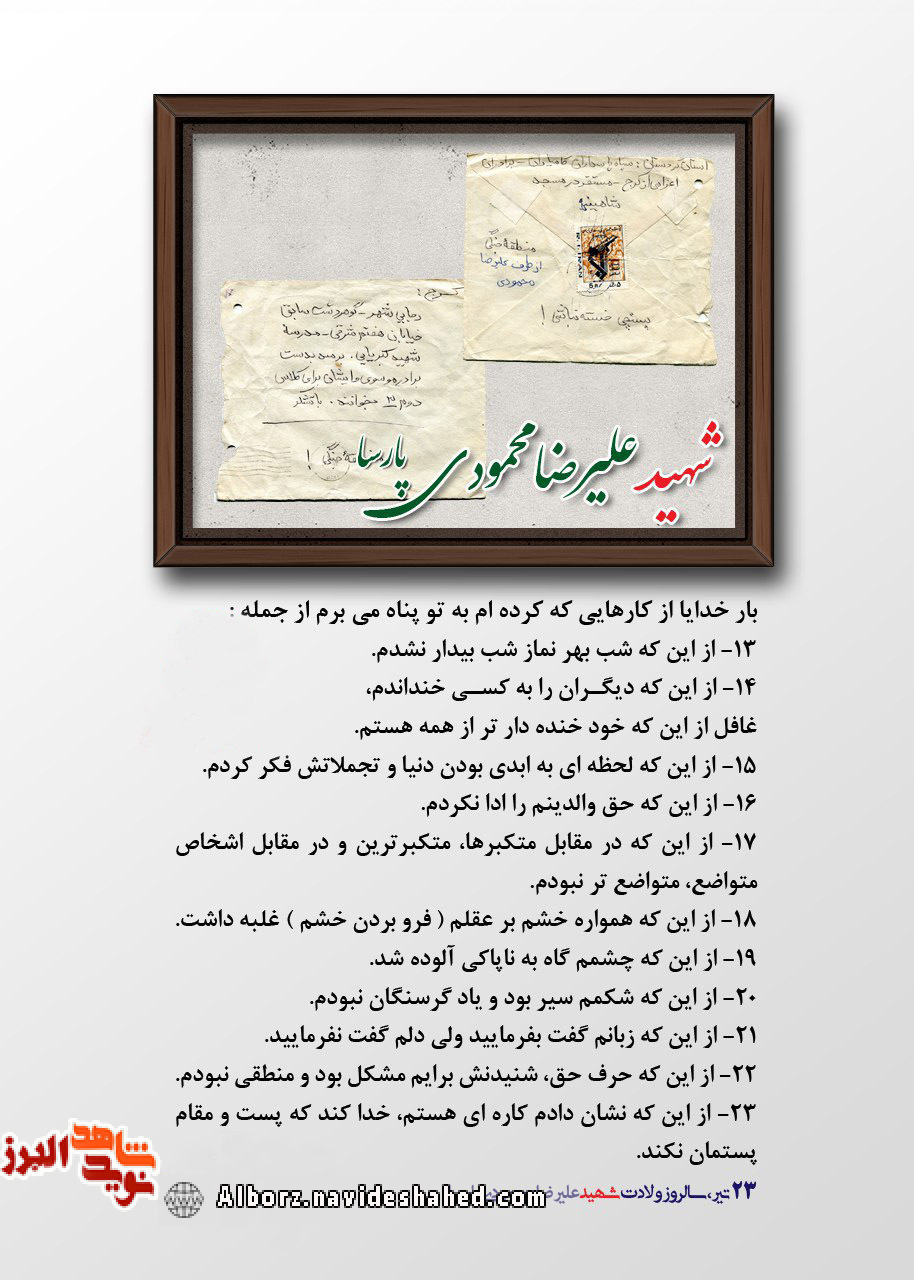 استان کردستان : سپاه پاسداران کامیاران -
اعزامی از کرج - مستقر در مسجد
منطقه جنگی
از طرف علیرضا
محمودی
پستچی خسته نباشی !
کرج :
رجایی شهر - گوهردشت سابق
خیابان هفتم شرقی - مدرسه
شهید کبریایی . برسد بدست
برادر موسوی و ایشان برای کلاس
دوم بخوانند . با تشکر
جنگی !
شهید علیرضا محمودی پارسا
بار خدایا از کارهایی که کرده ام به تو پناه می برم از جمله :
۱۳- از این که شب بهر نماز شب بیدار نشدم.
۱۴- از این که دیگران را به کسی خنداندم،
غافل از این که خود خنده دار تر از همه هستم.
۱۵- از این که لحظه ای به ابدی بودن دنیا و تجملاتش فکر کردم.
۱۶- از این که حق والدینم را ادا نکردم.
۱۷- از این که در مقابل متکبرها، متکبرترین و در مقابل اشخاص
متواضع، متواضع تر نبودم.
۱۸- از این که همواره خشم بر عقلم ( فرو بردن خشم ) غلبه داشت.
۱۹- از این که چشمم گاه به ناپاکی آلوده شد.
۲۰- از این که شکمم سیر بود و یاد گرسنگان نبودم.
۲۱- از این که زبانم گفت بفرمایید ولی دلم گفت نفرمایید.
۲۲- از این که حرف حق، شنیدنش برایم مشکل بود و منطقی نبودم.
۲۳- از این که نشان دادم کاره ای هستم، خدا کند که پست و مقام
پستمان نکند.
۲۳ تیر، سالروز ولادت شهید علیرضا
Alborz.navideshahed.com
نوید شاهد البرز